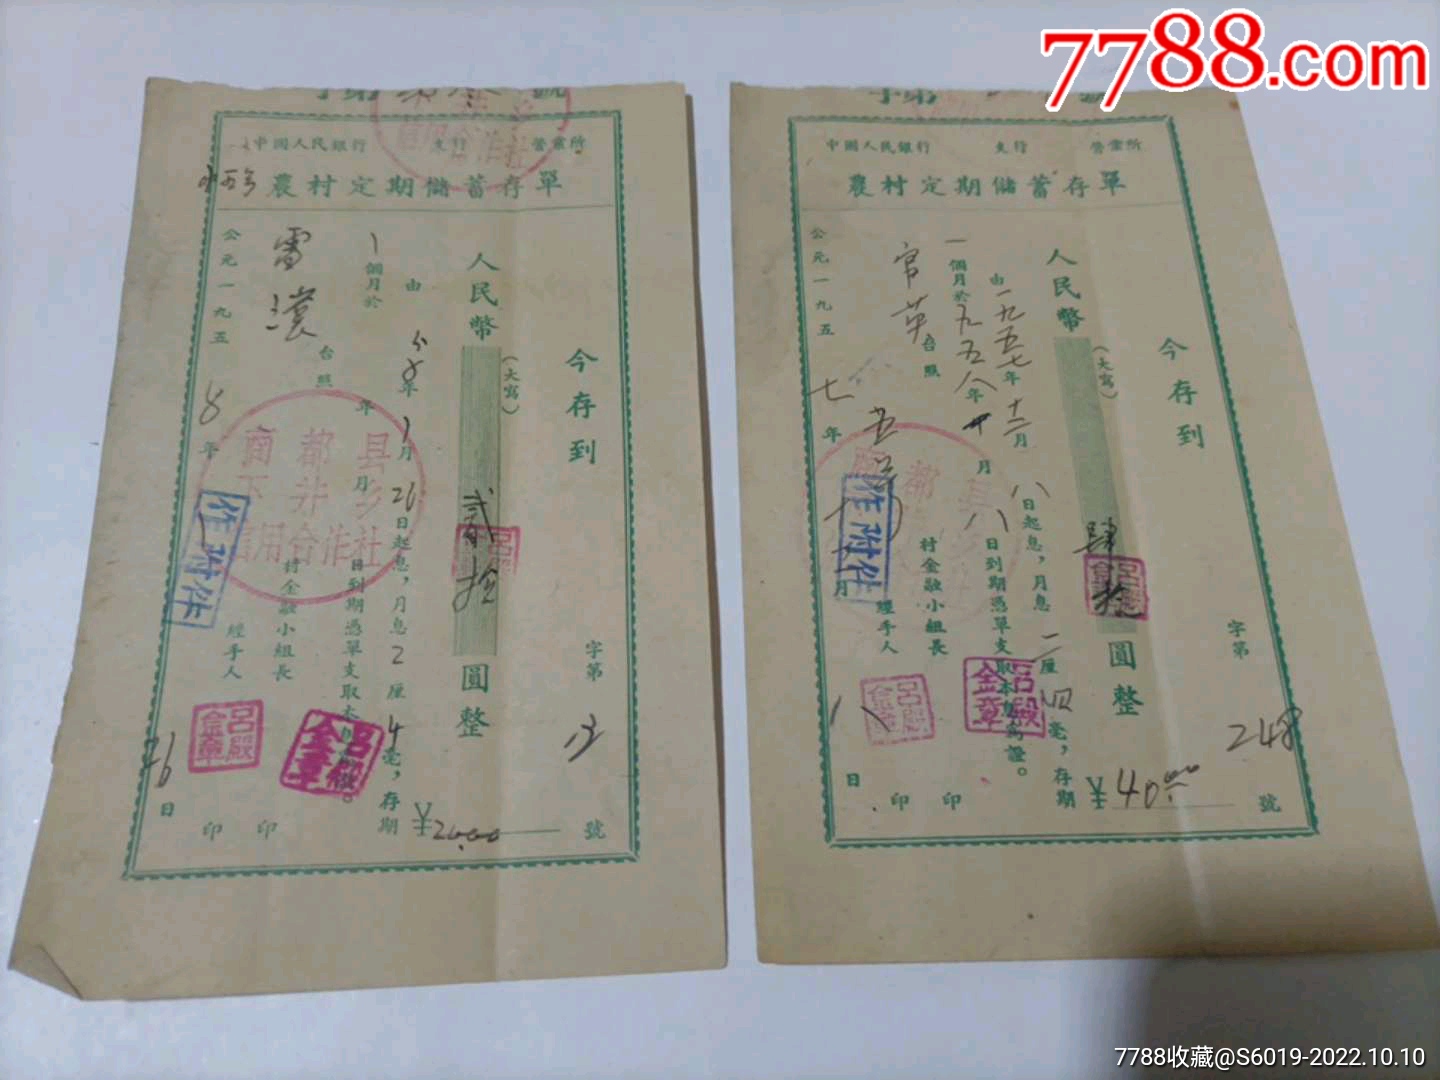 7788.com
字第 號
中國人民銀行 支行 營業所
農村定期儲蓄存單
今存到
字第 號
人民幣
(大寫)
貳拾
圓整
¥20.00
由58年1月26日起息,月息2厘4毫,存期
1個月於 年 月 日到期憑單支取本息為證。
雷 台照
村金融小組長 印
經手人 印
公元一九五8年 月26日
商都县
井乡
信用合作社
作附件
呂殿金章
呂殿金章
呂殿金章
字第 號
中國人民銀行 支行 營業所
農村定期儲蓄存單
今存到
字第248號
人民幣
(大寫)
肆拾
圓整
¥40.00
由一九五七年十二月八日起息,月息二厘四毫,存期
一個月於一九五八年 月八日到期憑單支取本息為證。
官英 台照
村金融小組長 印
經手人 印
公元一九五七年 月 日
都县
作附件
呂殿金章
呂殿金章
呂殿金章
7788收藏@S6019-2022.10.10